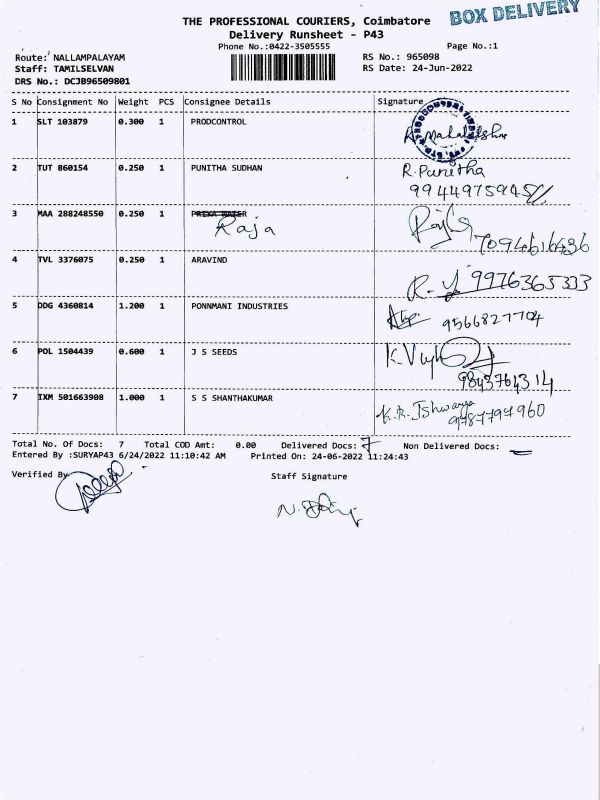 BOX DELIVERY
THE PROFESSIONAL COURIERS, Coimbatore
Delivery Runsheet - P43
Phone No.:0422-3505555 Page No.:1
Route: NALLAMPALAYAM RS No.: 965098
Staff: TAMILSELVAN RS Date: 24-Jun-2022
DRS No.: DCJB96509801
S No Consignment No Weight PCS Consignee Details Signature
1 SLT 103879 0.300 1 PRODCONTROL
2 TUT 860154 0.250 1 PUNITHA SUDHAN R. Punitha
9944975945
3 MAA 288248550 0.250 1
Raja 7094616436
4 TVL 3376075 0.250 1 ARAVIND
9976365333
5 DDG 4360814 1.200 1 PONNMANI INDUSTRIES
9566827704
6 POL 1504439 0.600 1 J S SEEDS
9843764314
7 IXM 501663908 1.000 1 S S SHANTHAKUMAR K.R. Ishwarya
9787797960
Total No. Of Docs: 7 Total COD Amt: 0.00 Delivered Docs: 7 Non Delivered Docs: —
Entered By :SURYAP43 6/24/2022 11:10:42 AM Printed On: 24-06-2022 11:24:43
Verified By Staff Signature